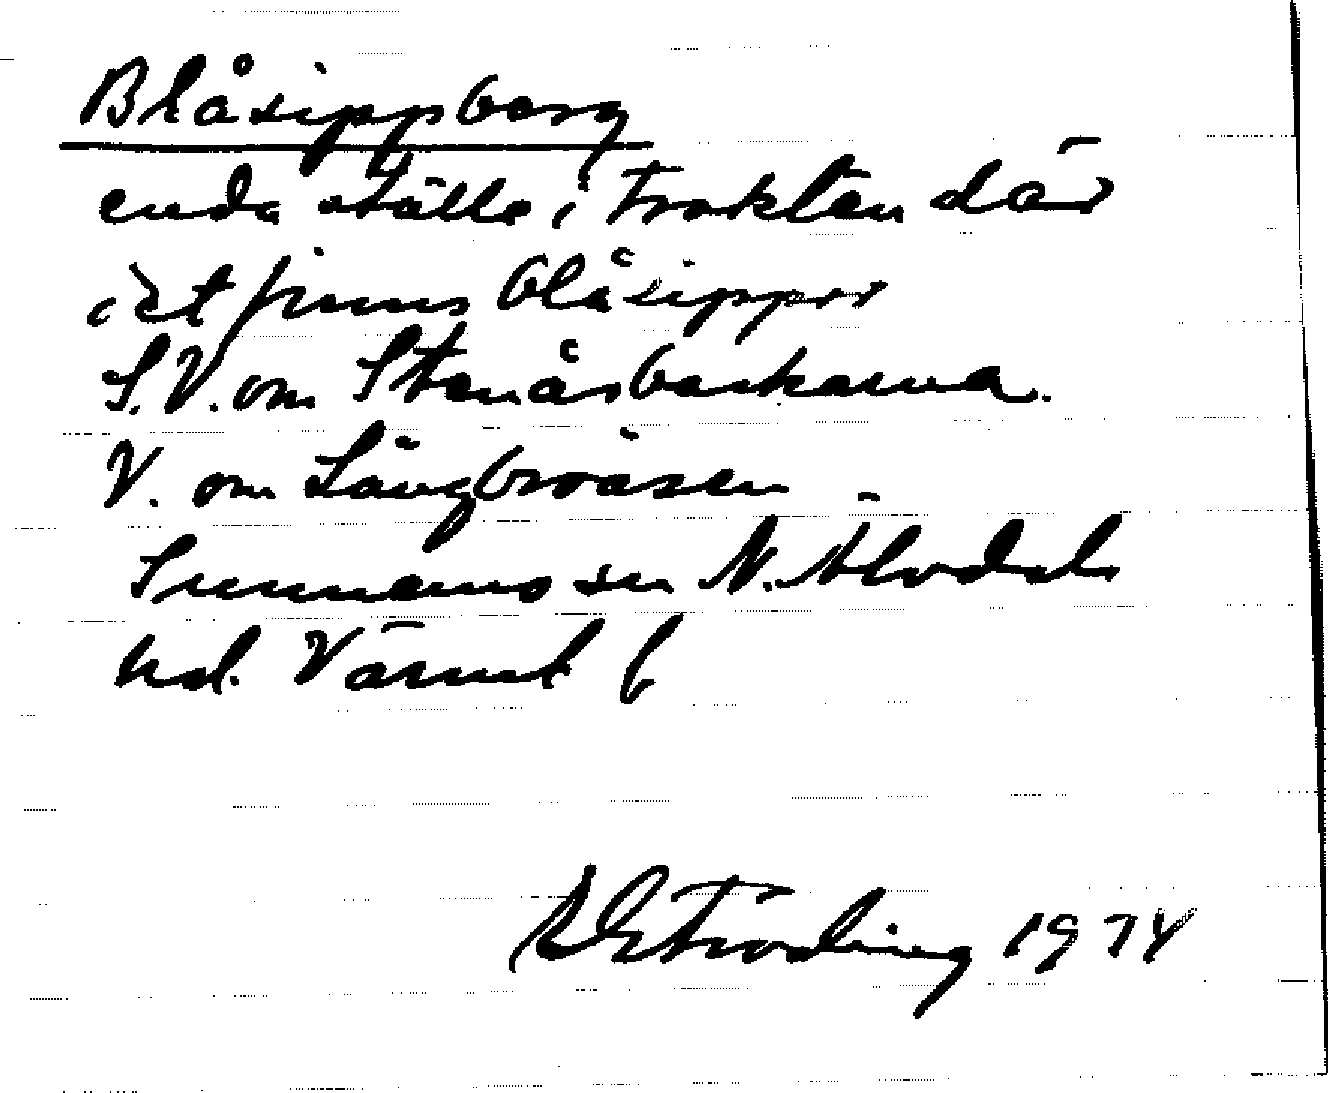 Blåsippberg
enda ställe i trakten där
det finns blåsippor
S.V. om Stenåsbackarna.
V. om Långbroåsen
Sunnemo sn N. Älvdals
hd. Värml
Fröding 1974